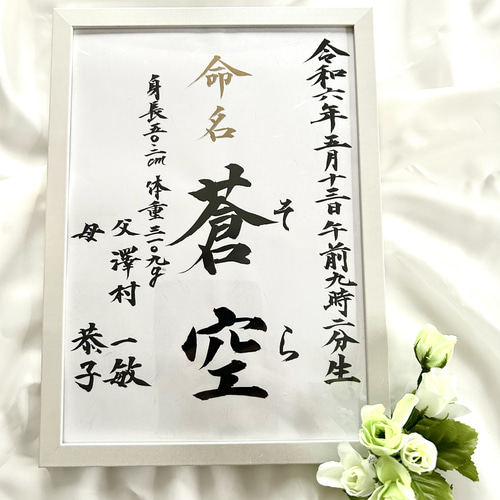 令和六年五月十三日午前九時二分生
命名
蒼空
そら
身長五〇.二cm 体重三一〇九g
父 澤村 一敏
母 恭子